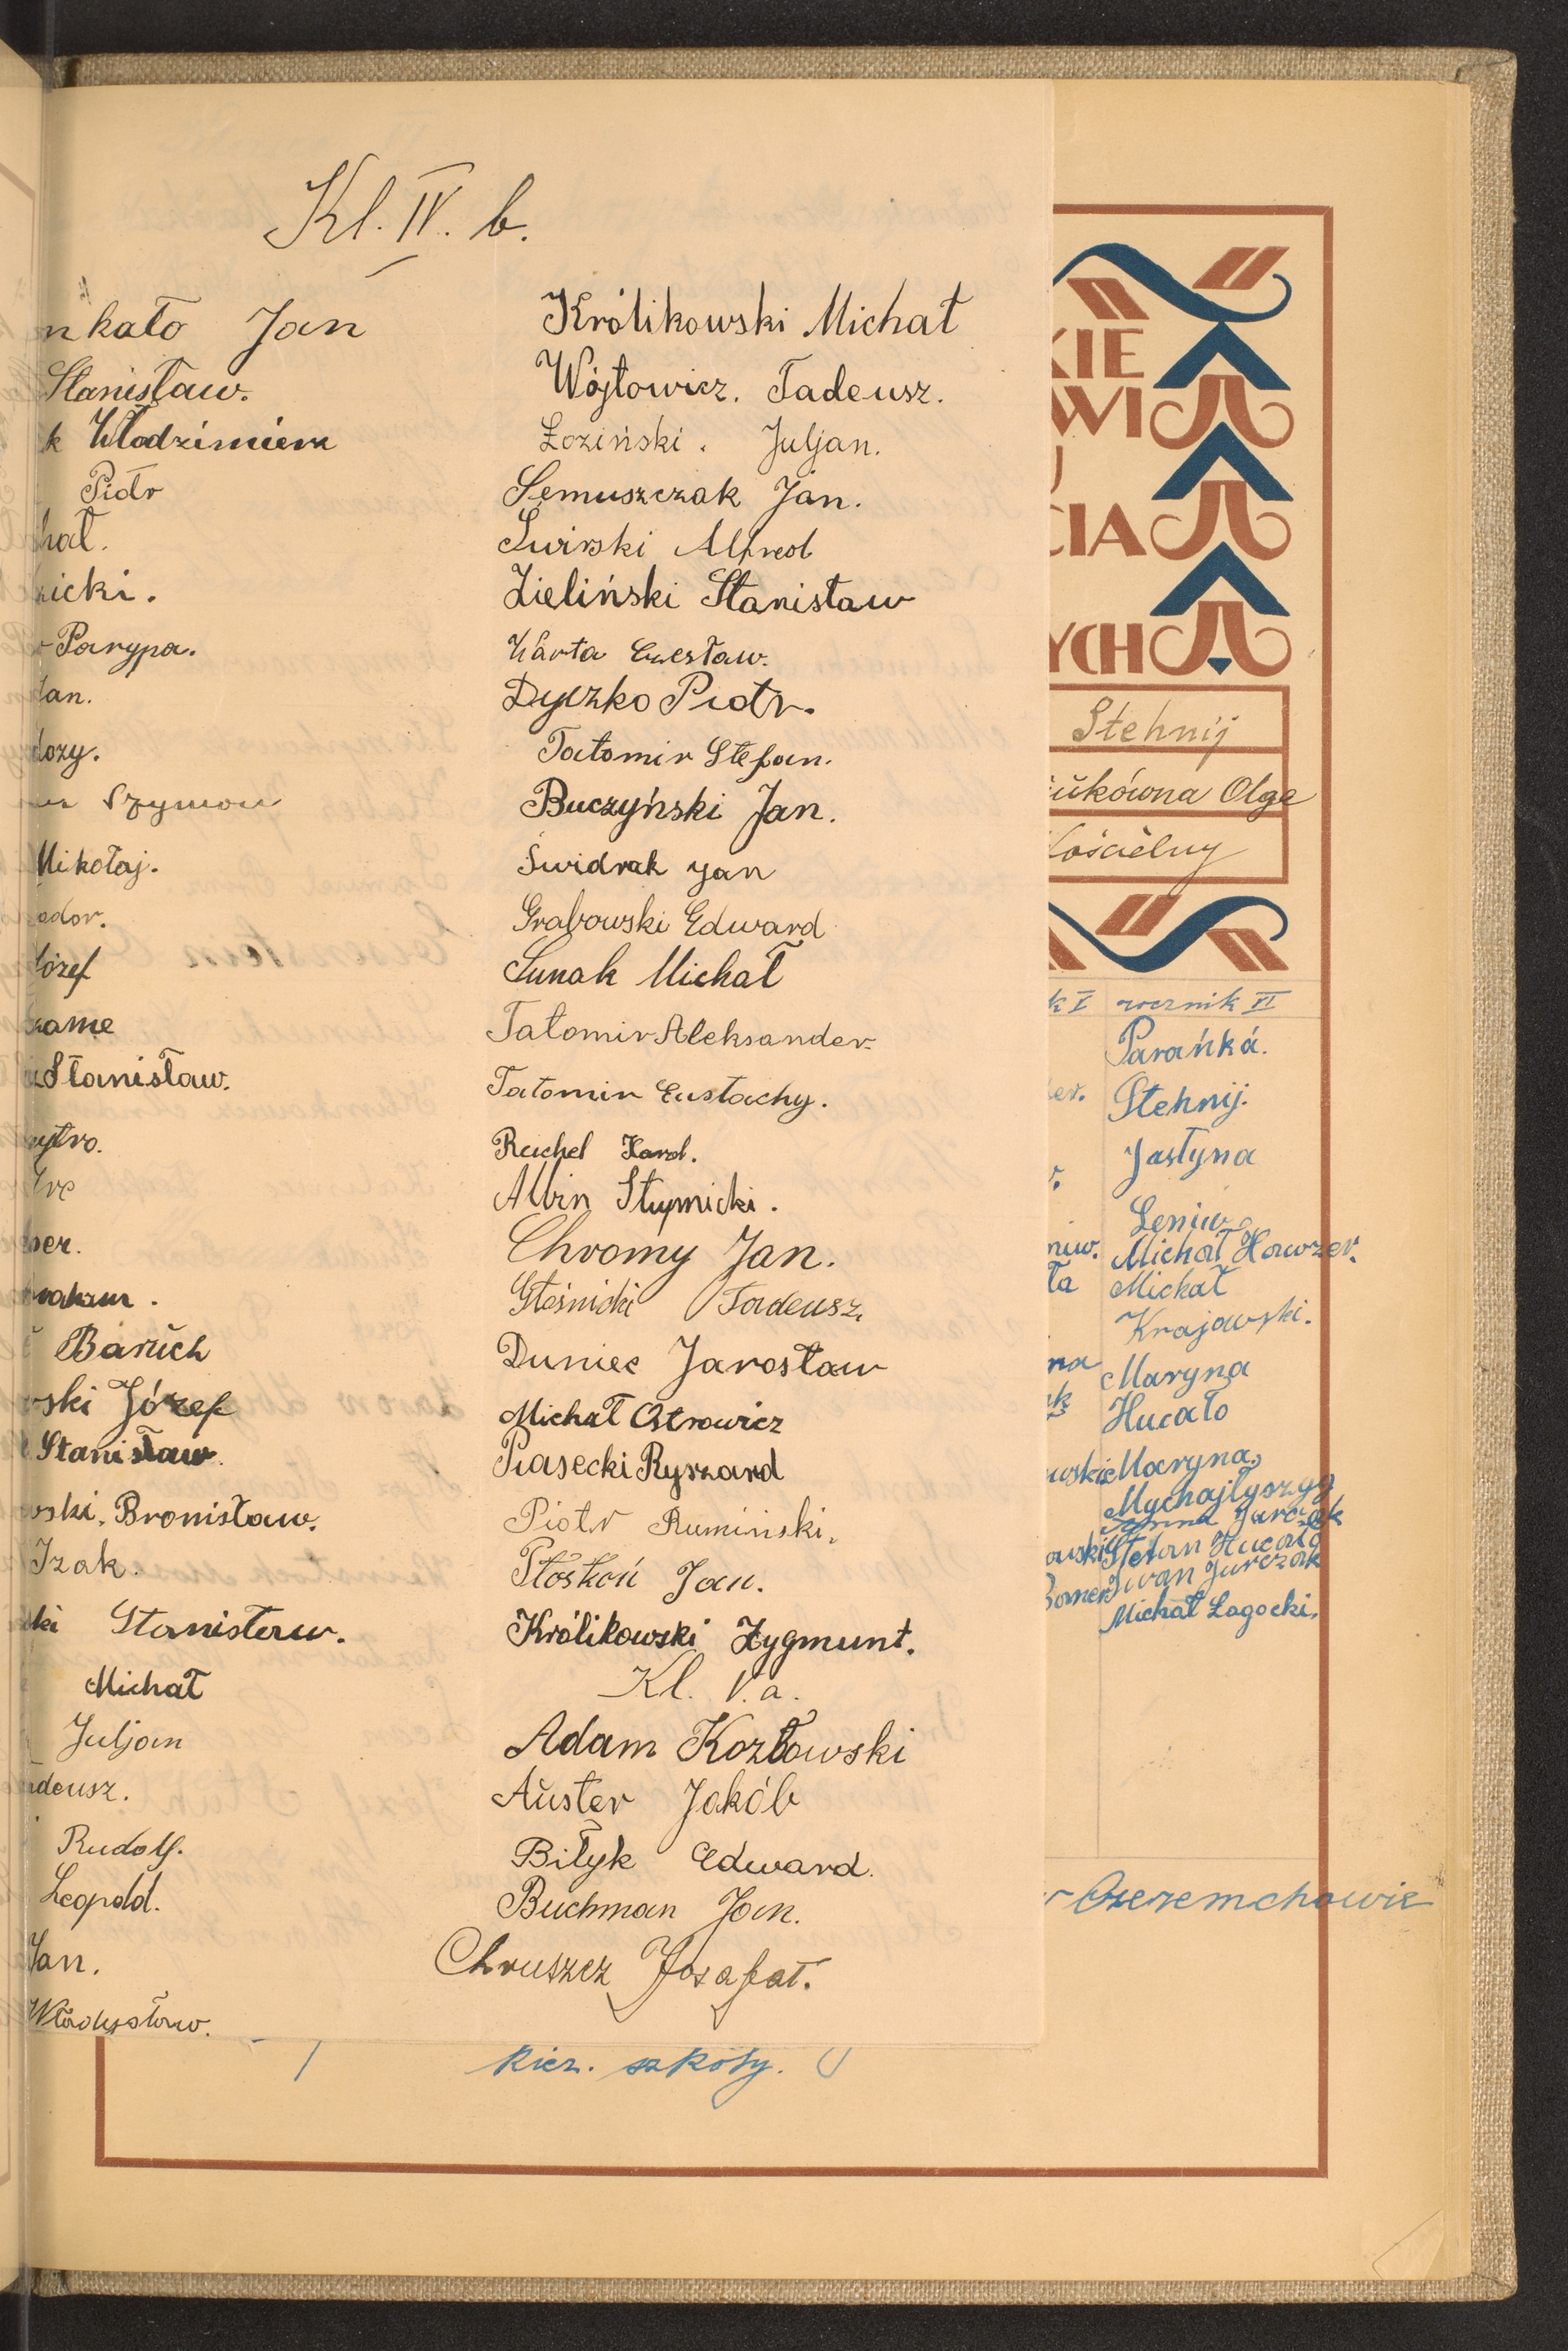 Kl. IV. b.
nkało Jan
Stanisław.
k Włodzimierz
Piotr
chał.
icki.
Parypa.
Jan.
dozy.
Szymon
Mikołaj.
eodor.
Józef
Stanisław.
ber.
Baruch
ski Józef
Stanisław.
wski, Bronisław.
Izak.
ski Stanisław.
Michał
Juljan
adeusz.
Rudolf.
Leopold.
Jan.
Władysław.
Królikowski Michał
Wójtowicz. Tadeusz.
Łoziński. Juljan.
Semuszczak Jan.
Świrski Alfred
Zieliński Stanisław
Warta Czesław.
Dyczko Piotr.
Tatomir Stefan.
Buczyński Jan.
Świdrak Jan
Grabowski Edward
Sunak Michał
Tatomir Aleksander.
Tatomir Eustachy.
Reichel Karol.
Albin Stupnicki.
Chromy Jan.
Głośnicki Tadeusz.
Duniec Jarosław
Michał Ostrowicz
Piasecki Ryszard
Piotr Rumiński.
Płoskoń Jan.
Królikowski Zygmunt.
Kl. V. a.
Adam Kozłowski
Auster Jakób
Biłyk Edward.
Buchman Jan.
Chruszcz Jozafat.
kier. szkoły.
KIE
WI
U
CIA
YCH
Stehnij
ukówna Olga
Kościelny
k I rocznik II
Parańka.
Stehnij.
Jastyna
Leniw
Michał Hawzer.
Michał
Krajowski.
Maryna
Hucało
Maryna
Mychajłyszyn
Jarczak
Stefan Hucało
Iwan Jurczak
Michał Łagocki.
Ozeremchowie